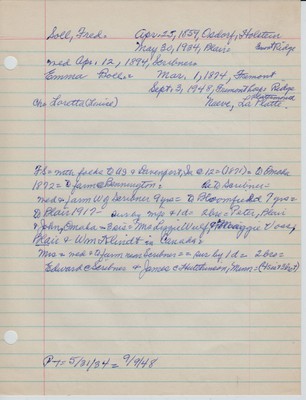 Soll, Fred. Apr. 25, 1859, Osdorf, Holstein
May 30, 1934, Blair. Ridge
med Apr. 12, 1894, Scribner
Emma Boll. Mar. 1, 1874, Fremont
Sept. 3, 1948, Ridge
Ch: Loretta (Louise) Nieve, La Platte.
Fb = with folks to US & Davenport, Ia @ 12 = (1871) = to Omaha
1872 = to farm @ Bennington = to Scribner =
med = farm W of Scribner 9 yrs = to Bloomfield 7 yrs =
to Blair 1917 = sur by wife & 1 d = 2 bro = Peter, Blair
& John, Omaha = 3 sis = Mrs Lizzie Wulf & Maggie &
Blair & Wm Klindt in Canada =
Mrs = med = to farm near Scribner = = sur by 1 d = 2 bro =
Edward @ Scribner & James @ Hutchinson, Minn =
P-T = 5/31/34 = 9/9/48